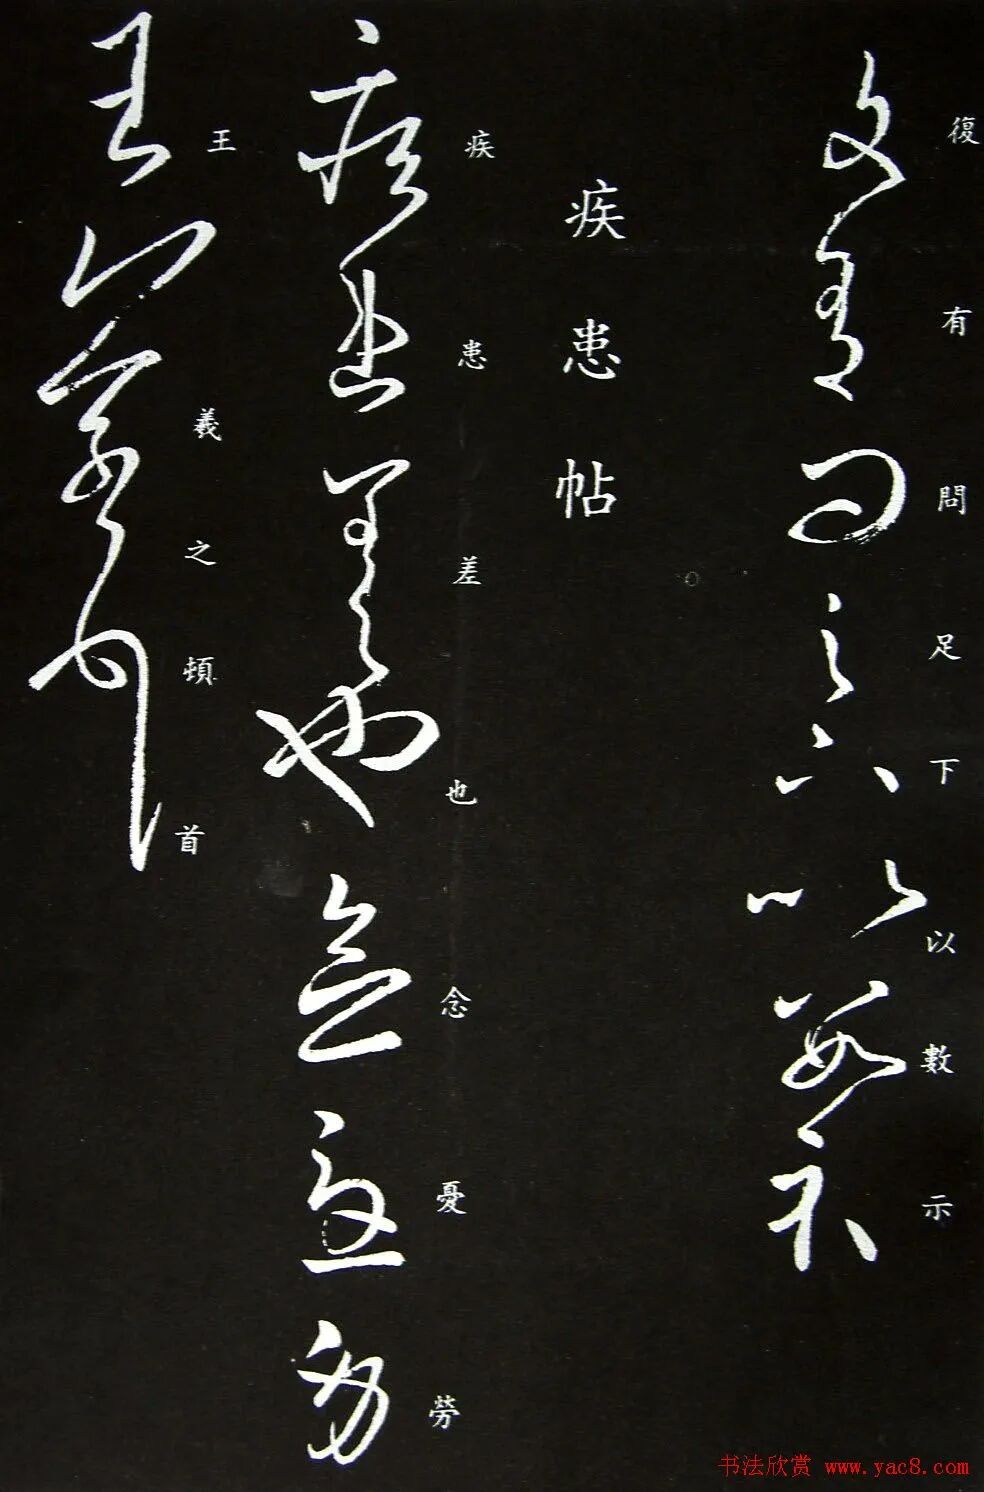 復有問足下以數示
疾患帖
疾患差也念憂勞
王羲之頓首
书法欣赏 www.yac8.com